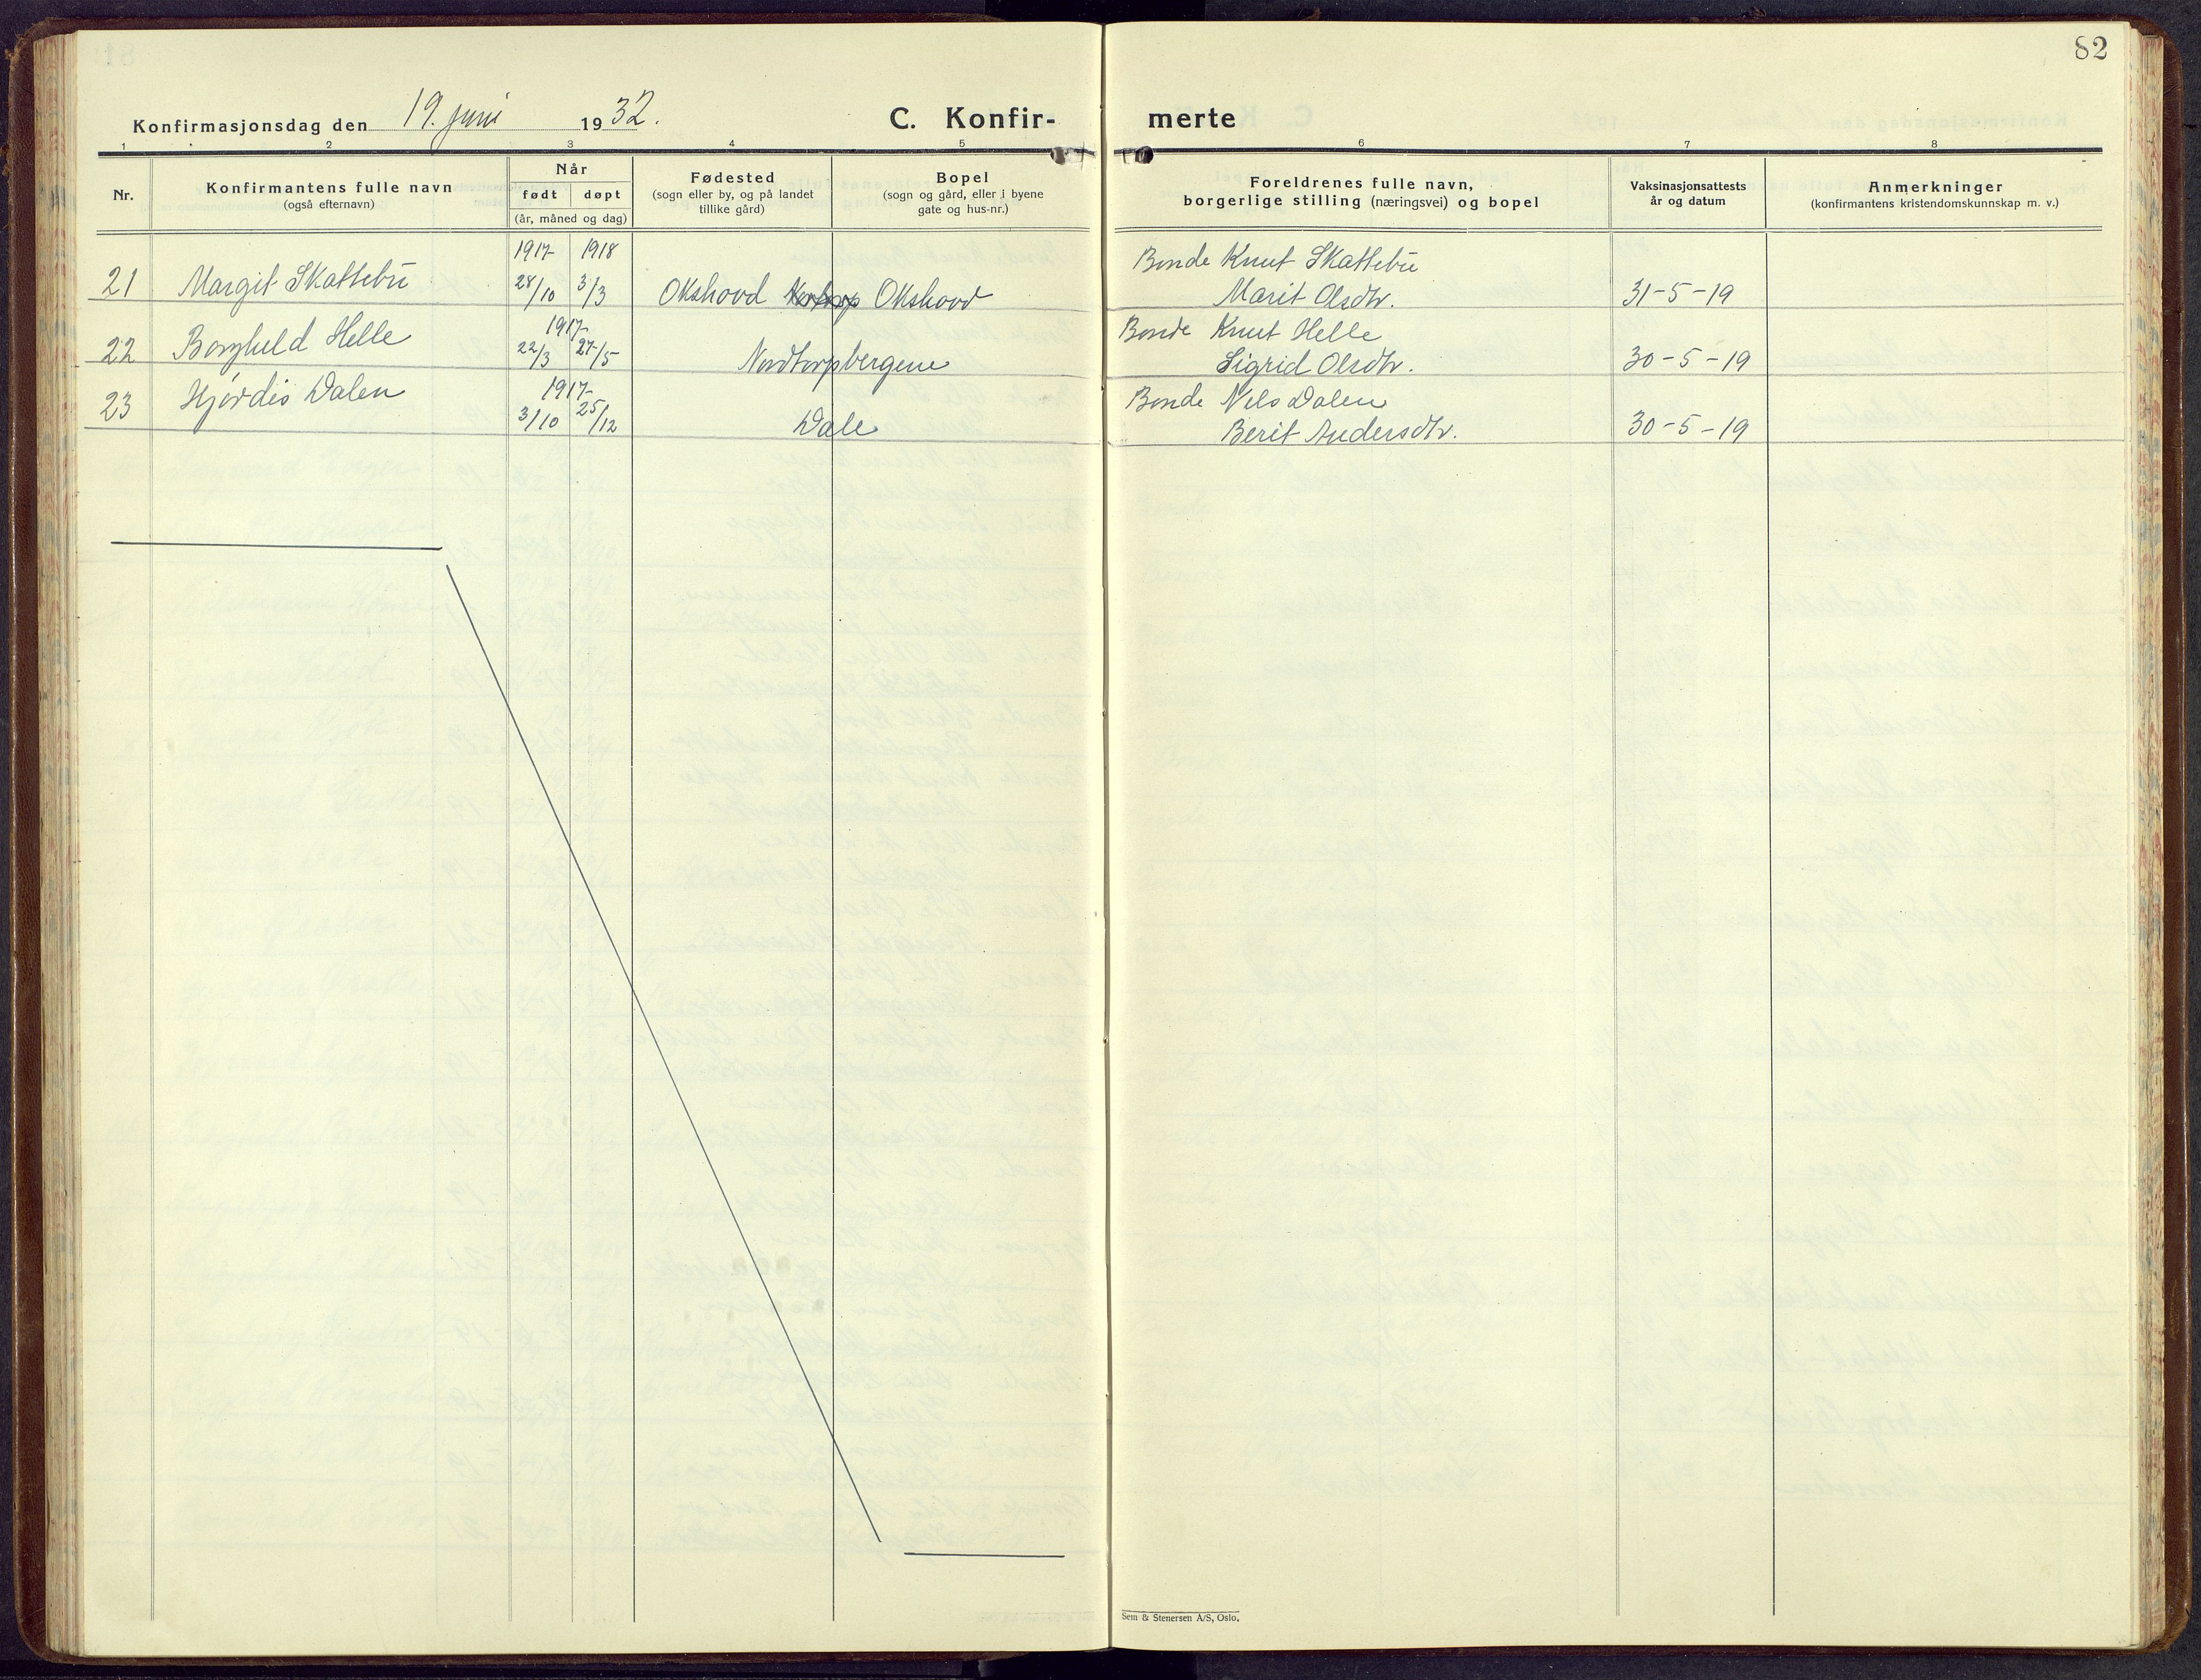 82
Konfirmasjonsdag den 19. juni 1932.
C. Konfir-
merte
1 2 3 4 5 6 7 8
Nr.
Konfirmantens fulle navn
(også efternavn)
Når
født døpt
(år, måned og dag)
Fødested
(sogn eller by, og på landet
tillike gård)
Bopel
(sogn og gård, eller i byene
gate og hus-nr.)
Foreldrenes fulle navn,
borgerlige stilling (næringsvei) og bopel
Vaksinasjonsattests
år og datum
Anmerkninger
(konfirmantens kristendomskunnskap m. v.)
1917 1918 Bonde Knut Skattebu
21 Margit Skattebu 28/10 3/3 Okshovd Okshovd Marit Olsdtr. 31-5-19
1917 Bonde Knut Helle
22 Borghild Helle 22/3 27/5 Nordtorpbergene Sigrid Olsdtr. 30-5-19
23 Hjördis Dalen 1917 Bonde Nels Dalen
3/10 25/12 Dale Berit Andersdtr. 30-5-19
Sem & Stenersen A/S, Oslo.